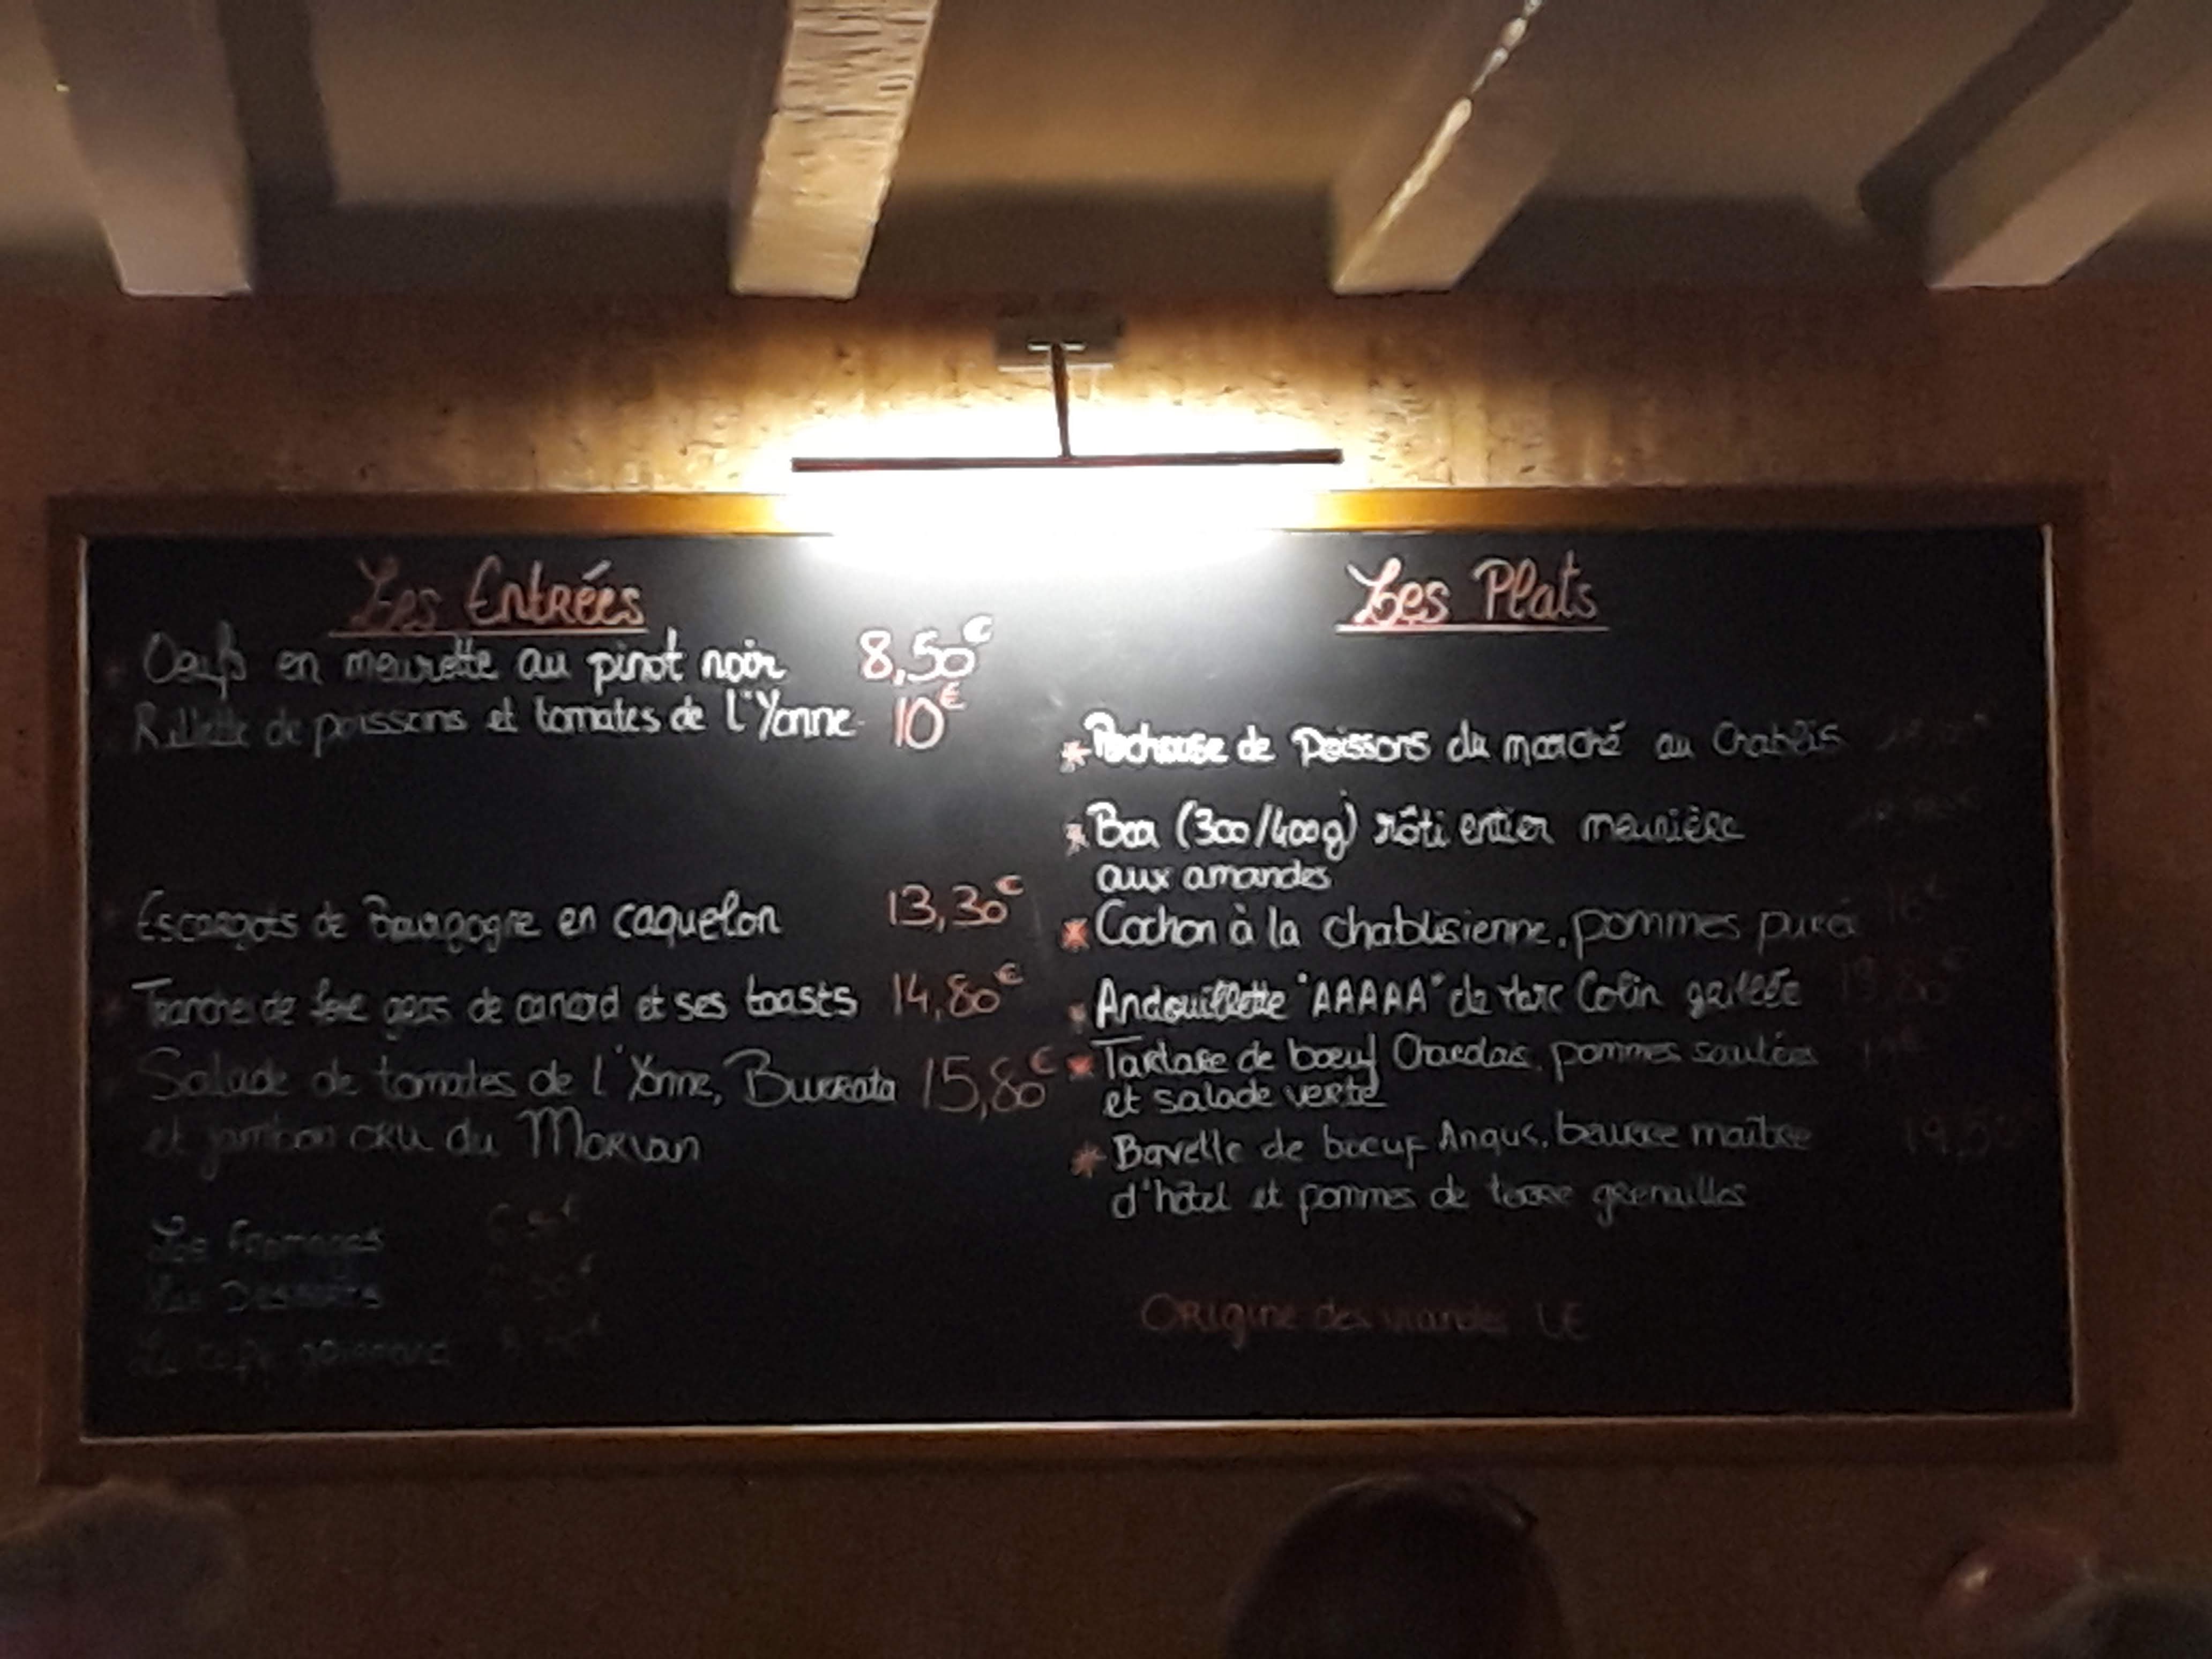 Les Entrées
Oeufs en meurette au pinot noir 8,50€
Rillette de poissons et tomates de l'Yonne 10€
Escargots de Bourgogne en caquelon 13,30€
Tranche de foie gras de canard et ses toasts 14,80€
Salade de tomates de l'Yonne, Burrata 15,80€
et jambon cru du Morvan
Les Fromages
Les Plats
Pochouse de Poissons du marché au Chablis
Bar (300/400g) rôti entier meunière
aux amandes
Cochon à la chablisienne, pommes purée 16€
Andouillette "AAAAA" de Marc Colin grillée
Tartare de bœuf Charolais, pommes sautées
et salade verte
Bavette de boeuf Angus, beurre maître
d'hôtel et pommes de terre grenailles
Origine des viandes UE